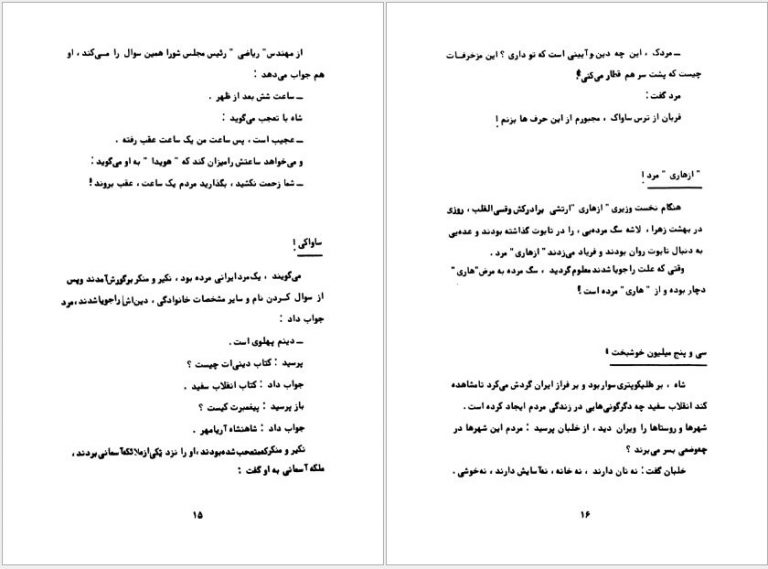 از مهندس " ریاضی " رئیس مجلس شورا همین سوال را می‌کند ، او
هم جواب می‌دهد :
ــ ساعت شش بعد از ظهر .
شاه با تعجب می‌گوید :
ــ عجیب است ، پس ساعت من یک ساعت عقب رفته .
و می‌خواهد ساعتش رامیزان کند که " هویدا " به او می‌گوید :
ــ شما زحمت نکشید ، بگذارید مردم یک ساعت ، عقب بروند !
ساواکی !
می‌گویند ، یک‌مرد ایرانی مرده بود ، نکیر و منکر برگورش آمدند وپس
از سوال کـردن نام و سایر مشخصات خانوادگی ، دین‌اش راجویا شدند ، مرد
جواب داد :
ــ دینم پهلوی است .
پرسید : کتاب دینی‌ات چیست ؟
جواب داد : کتاب انقلاب سفید .
باز پرسید : پیغمبرت کیست ؟
جواب داد : شاهنشاه آریامهر .
نکیر و منکرکه‌متعجب شده‌بودند ، او را نزد یکی‌ازملائکه‌آسمانی‌بردند ،
ملکه آسمانی به او گفت :
۱۵
ــ مردک ، این چه دین و آیینی است که تو داری ؟ این مزخرفـات
چیست که پشت سر هم قطار می‌کنی !
مرد گفت :
قربان از ترس ساواک ، مجبورم از این حرف ها بزنم !
" ازهاری " مرد !
هنگام نخست وزیری " ازهاری " ارتشی برادرکش وقسی‌القلب ، روزی
در بهشت زهرا ، لاشه سگ مرده‌یی ، را در تابوت گذاشته بودند و عده‌یی
به دنبال تابوت روان بودند و فریاد می‌زدند " ازهاری " مرد .
وقتی که علت را جویا شدند معلوم گردید ، سگ مرده به مرض " هاری "
دچار بوده و از " هاری " مرده است !
سی و پنج میلیون خوشبخت !
شاه ، بر هلیکوپتری سوار بود و بر فراز ایران گردش می‌کرد تامشاهده
کند انقلاب سفید چه دگرگونی‌هایی در زندگی مردم ایجاد کرده است .
شهرها و روستاها را ویران دید ، از خلبان پرسید : مردم این شهرها در
چه‌وضعی بسر می‌برند ؟
خلبان گفت : نه نان دارند ، نه خانه ، نه‌آسایش دارند ، نه‌خوشی .
۱۶